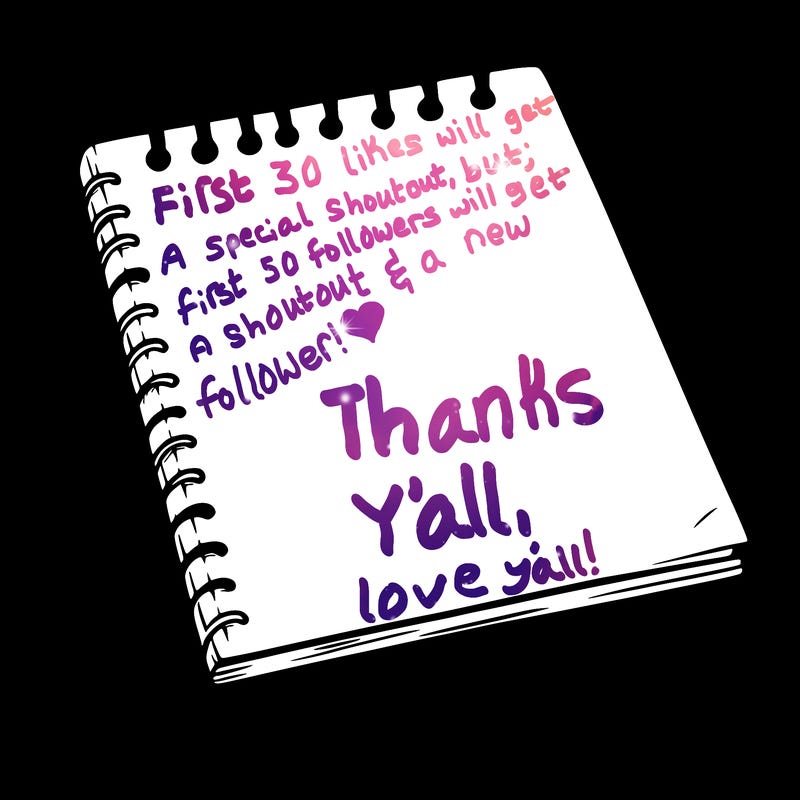 First 30 likes will get
A special shoutout, but;
first 50 followers will get
A shoutout & a new
follower!
Thanks
Y'all,
love y'all!